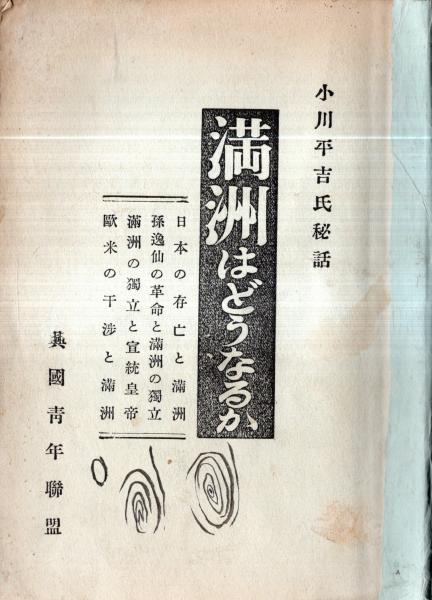 小川平吉氏秘話
満洲はどうなるか
日本の存亡と滿洲
孫逸仙の革命と滿洲の獨立
滿洲の獨立と宣統皇帝
歐米の干渉と滿洲
興國靑年聯盟